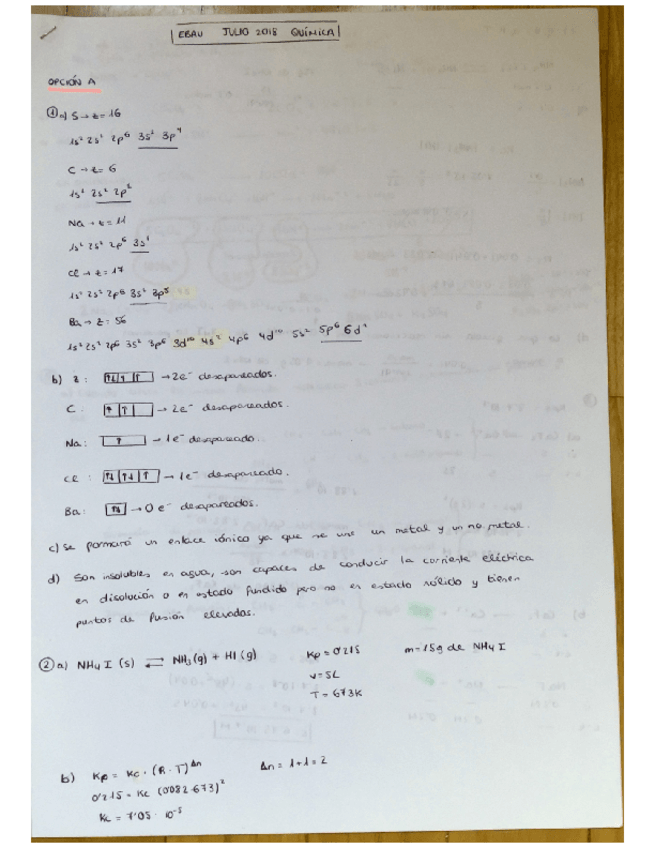 EBAU JULIO 2018 QUÍMICA
OPCIÓN A
① a) S → z = 16
1s² 2s² 2p⁶ 3s² 3p⁴
C → z = 6
1s² 2s² 2p²
Na → z = 11
1s² 2s² 2p⁶ 3s¹
Cl → z = 17
1s² 2s² 2p⁶ 3s² 3p⁵
Ba → z = 56
1s² 2s² 2p⁶ 3s² 3p⁶ 3d¹⁰ 4s² 4p⁶ 4d¹⁰ 5s² 5p⁶ 6d²
b) z : ↑↓ ↑ ↑ → 2e⁻ desapareados.
C : ↑ ↑ → 2e⁻ desapareados.
Na : ↑ → 1e⁻ desapareado.
Cl : ↑↓ ↑↓ ↑ → 1e⁻ desapareado.
Ba : ↑↓ → 0 e⁻ desapareados.
c) Se formará un enlace iónico ya que se une un metal y un no metal.
d) Son insolubles en agua, son capaces de conducir la corriente eléctrica
en disolución o en estado fundido pero no en estado sólido y tienen
puntos de fusión elevados.
② a) NH₄I (s) ⇄ NH₃ (g) + HI (g) Kp = 0'215 m = 15g de NH₄I
v = 5L
T = 673K
b) Kp = Kc · (R · T)^Δn Δn = 1+1 = 2
0'215 = Kc (0'082·673)²
Kc = 7'05 · 10⁻⁵